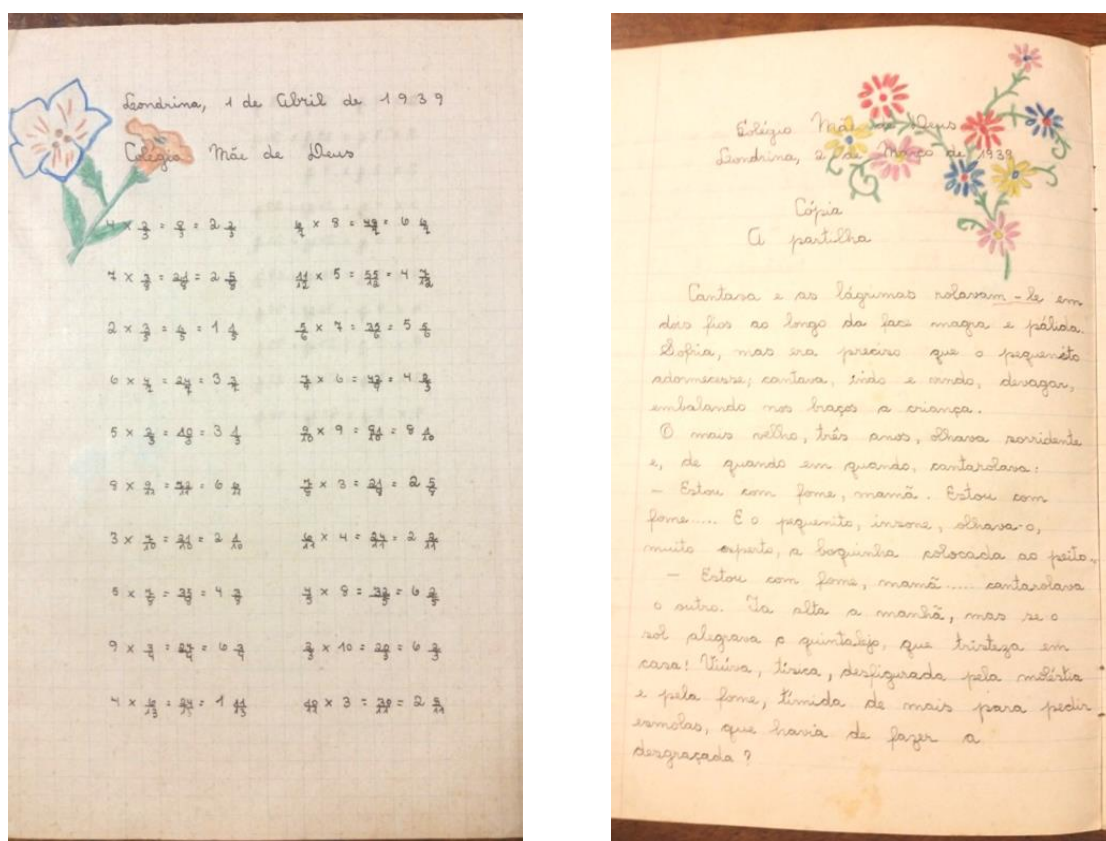 Londrina, 1 de Abril de 1939
Colégio Mãe de Deus
4 × 2/3 = 8/3 = 2 2/3    6/7 × 8 = 48/7 = 6 6/7
7 × 3/8 = 21/8 = 2 5/8    11/12 × 5 = 55/12 = 4 7/12
2 × 3/5 = 6/5 = 1 1/5    5/6 × 7 = 35/6 = 5 5/6
6 × 4/7 = 24/7 = 3 3/7    7/9 × 6 = 42/9 = 4
5 × 2/3 = 10/3 = 3 1/3    9/10 × 9 = 81/10 = 8 1/10
8 × 9/11 = 72/11 = 6 6/11    7/8 × 3 = 21/8 = 2 5/8
3 × 7/10 = 21/10 = 2 1/10    6/11 × 4 = 24/11 = 2 2/11
5 × 7/8 = 35/8 = 4 3/8    4/5 × 8 = 32/5 = 6 2/5
9 × 3/4 = 27/4 = 6 3/4    2/3 × 10 = 20/3 = 6 2/3
4 × 6/13 = 24/13 = 1 11/13    10/11 × 3 = 30/11 = 2 8/11
Colégio Mãe de Deus
Londrina, 2 de Março de 1939
Cópia
A partilha
Cantava e as lágrimas rolavam-le em
dois fios ao longo da face magra e pálida.
Sofria, mas era preciso que o pequenito
adormecesse; cantava, indo e vindo, devagar,
embalando nos braços a criança.
O mais velho, três anos, olhava sorridente
e, de quando em quando, cantarolava:
– Estou com fome, mamã. Estou com
fome..... E o pequenito, insone, olhava-o,
muito esperto, a boquinha colocada ao peito.
– Estou com fome, mamã..... cantarolava
o outro. Ia alta a manhã, mas se o
sol alegrava o quintalejo, que tristeza em
casa! Viúva, tísica, desfigurada pela moléstia
e pela fome, tímida de mais para pedir
esmolas, que havia de fazer a
desgraçada?